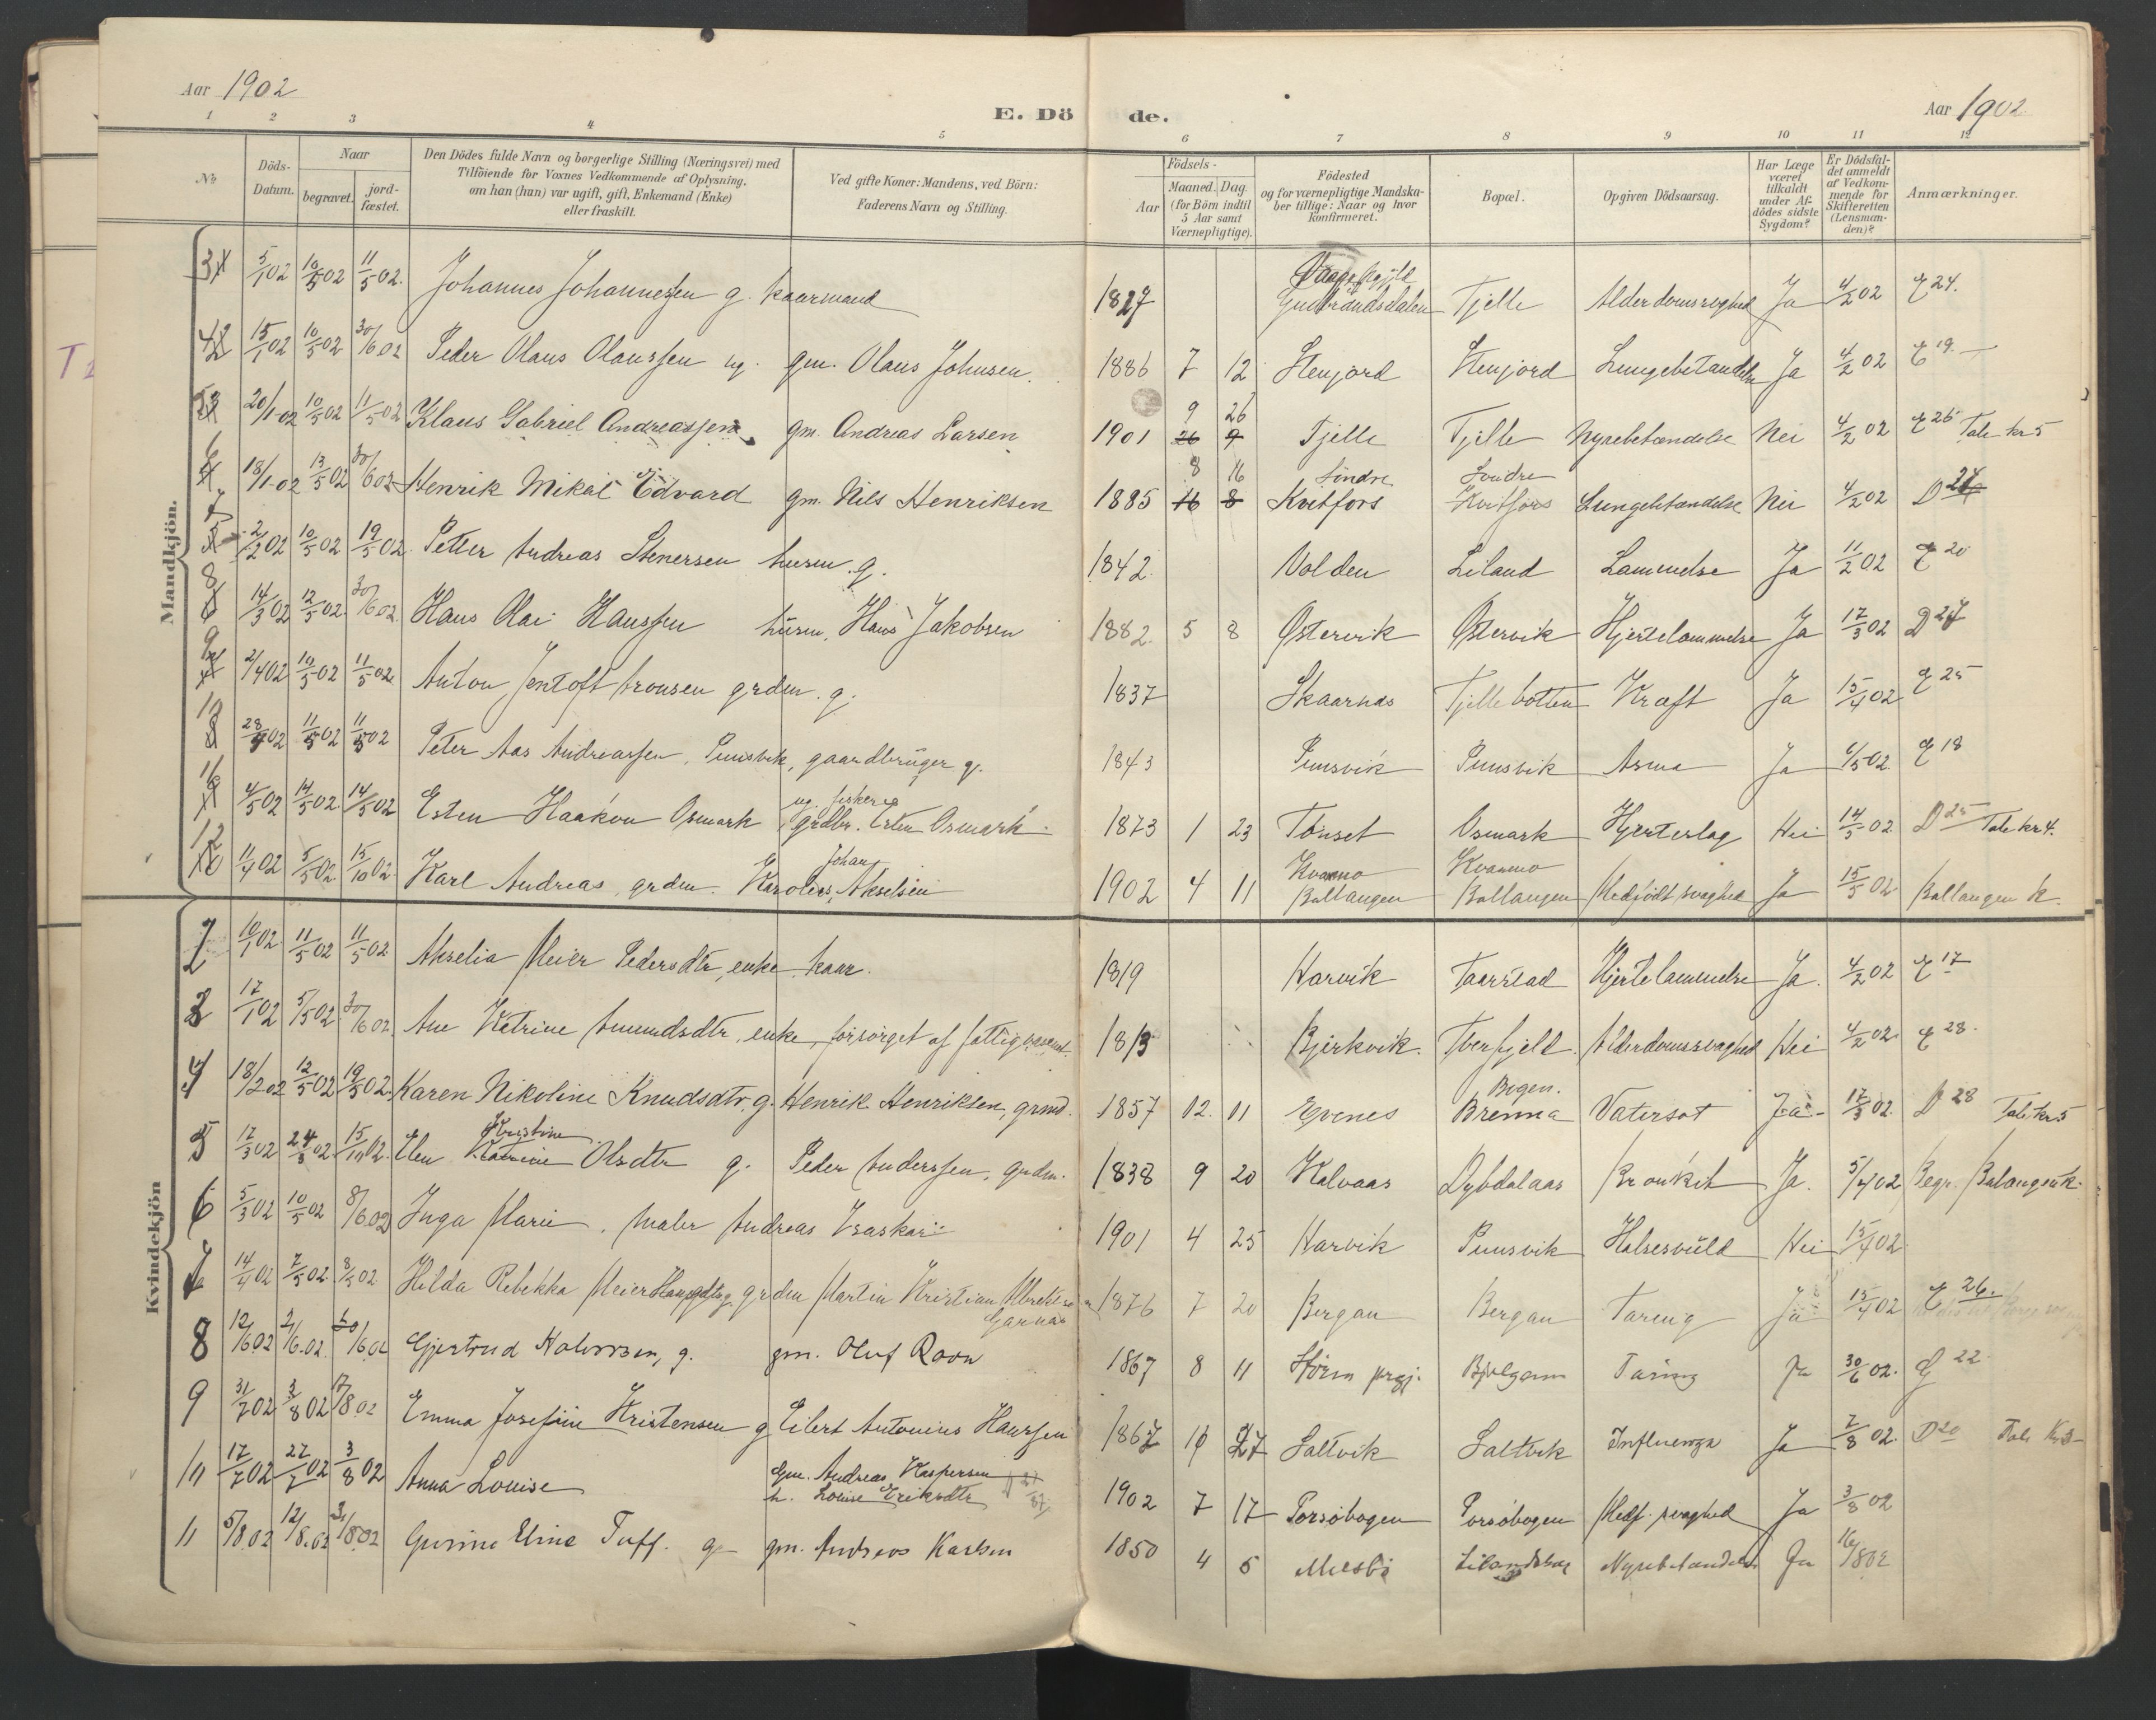 Aar 1902
E. Döde.
Aar 1902
1 2 3 4 5 6 7 8 9 10 11 12
No
Döds-Datum.
Naar
begravet.
jord-fæstet.
Den Dödes fulde Navn og borgerlige Stilling (Næringsvei) med
Tilföiende for Voxnes Vedkommende af Oplysning.
om han (hun) var ugift, gift, Enkemand (Enke)
eller fraskilt.
Ved gifte Koner: Mandens, ved Börn:
Faderens Navn og Stilling.
Födsels-
Aar
Maaned. Dag.
(for Börn indtil
5 Aar samt
Værnepligtige).
Födested
og for værnepligtige Mandska-
ber tillige: Naar og hvor
konfirmeret.
Bopæl.
Opgiven Dödsaarsag.
Har Læge
været
tilkaldt
under Af-
dödes sidste
Sygdom?
Er Dödsfal-
det anmeldt
af Vedkom-
mende for
Skifteretten
(Lensman-
den)?
Anmærkninger.
Mandkjön.
3 5/1 02 10/5 02 11/5 02. Johannes Johannessen g. kaarmand 1827 Gudbrandsdalen Tjelle Alderdomssvaghed Ja 4/2 02 E 24.
4 15/1 02 10/5 02 30/6 02 Peder Olaus Olaussen ug. gm. Olaus Johnsen. 1886 7 12 Stenjord Stenjord Lungebetændelse Ja 4/2 02 E 19.
5 20/1-02 10/5 02 11/5 02 Klaus Gabriel Andreassen gm. Andreas Larsen 1901 9 26 Tjelle Tjelle Nyrebetændelse Nei 4/2 02 E 26 Tale kr 5
6 18/1-02 13/5 02 30/6 02 Henrik Mikal Edvard gm. Nils Henriksen 1885 8 16 Söndre Kvitfors Söndre Kvitfors Lungebetændelse Nei 4/2 02 D 24
7 2/2 02 10/5 02 19/5 02. Petter Andreas Stenersen husm. g. 1842. Volden Liland Lammelse Ja 11/2 02 E 20
8 14/3 02 12/5 02 30/6 02. Hans Olai Hanssen husm. Hans Jakobsen 1882. 5 8 Østervik Østervik Hjertelammelse Ja 17/3 02 D 27
9 2/4 02 10/5 02 11/5 02. Anton Jentoft Aronsen grdm. g. 1837 Skaarnæs Tjellebotten Kræft Ja 15/4 02 E 25
10 28/4 02 11/5 02 11/5 02 Peter Aas Andreassen, Punsvik, gaardbruger g. 1843 Punsvik Punsvik Asma Ja 6/5 02. E 18
11 4/5 02 14/5 02. 14/5 02 Esten Haakon Osmark ug. fisker grdbr. Esten Osmark. 1873 1 23 Tönset Osmark Hjerteslag Nei 14/5 02 D 25 Tale kr 4.
12 11/4 02 5/5 02. 15/10 02. Karl Andreas, grdm. Karolius Johan Akselsen 1902 4 11 Kvanmo Ballangen Kvanmo Ballangen Medfödt svaghed Ja 15/5 02 Ballangen K.
Kvindekjön
2 10/1 02 11/5 02 11/5 02 Akselia Meier Pedersdtr, enke, kaar. 1819 Narvik Taarstad Hjertelammelse Ja. 4/2 02 E 17
3 17/1 02 5/5 02 30/6 02. Ane Katrine Amundsdtr, enke, forsörget af fattigvæsenet. 1813 Bjerkvik. Tverfjeld. Alderdomssvaghed Nei 4/2 02 E 28.
4 18/2 02 12/5 02 19/5 02. Karen Nikoline Knudsdtr. g. Henrik Henriksen, grmd. 1857 12. 11 Evenes Bogen. Brenna Vatersot Ja 17/3 02. D 28 Tale kr 5
5 17/3 02 24/3 02. 15/10 02. Elen Kristine Olsdtr g. Peder Anderssen, grdm. 1838 9 20 Kalvaas Dybdalaas Bronkit Ja. 5/4 02 Begr. Balangen k.
6 5/3 02 10/5 02 8/6 02 Inga Marie, maler Andreas Vraskar 1901 4 25 Narvik Punsvik Halsesvuld Nei 15/4 02
7 14/4 02 7/5 02. 8/5 02 Hilda Rebekka Meier Hansdtr g. grdm Martin Kristian Albrektsen Garnæs 1876 7 20 Bergan Bergan Tæring Ja 15/4 02 E 26.
8 12/6 02 2/6.02. 30/6 02 Gjertrud Halvorsen, g. gm. Oluf Raon 1867 8 11 prgj. Taring Ja 30/6 02. E 22.
9 31/7 02 3/8 02 17/8 02 Emma Josefine Kristensen g. Eilert Antonius Hanssen 1867 10 27 Saltvik Saltvik Influenza Ja 7/8 02. D 20 Tale Kr
10 17/7 02 27/7 02 3/8 02 Anna Louise Gm. Andreas Kaspersen h. Louise Eriksdtr 1902 7 17 Porsöbogen Porsöbogen Medf. svaghed Ja 3/8 02
11 5/8 02 12/8.02 31/8 02 Gurine Elina Toff. g. gm. Andreas Karlsen 1850 4 5 Melsbö Nyrebetændelse Ja 16/8 02